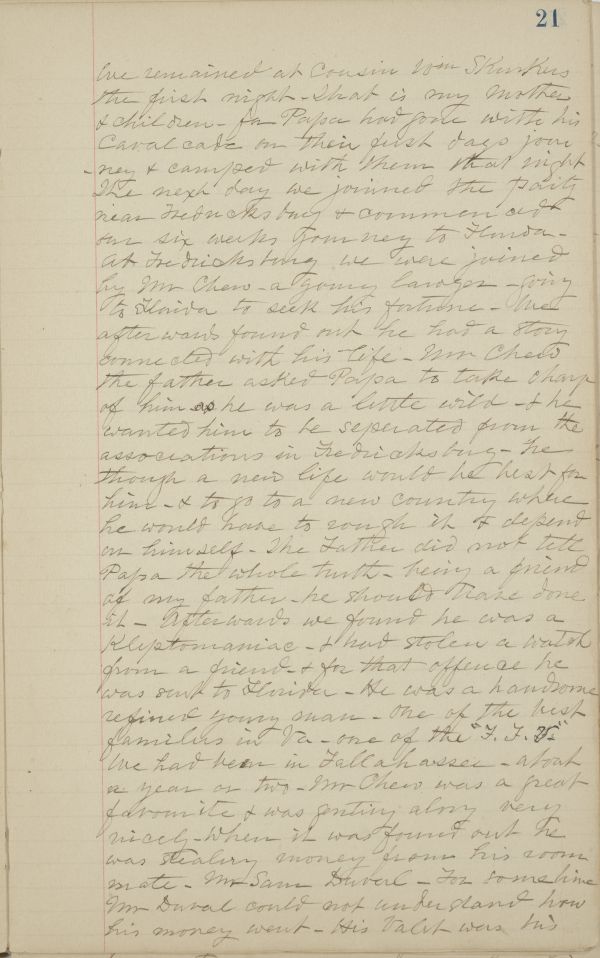 21
We remained at Cousin Wm Skinkers
the first night - that is my Mother
& children - for Papa had gone with his
Cavalcade on their first days jour
-ney & camped with them that night
The next day we joinned the party
near Fredricksburg & commenced
our six weeks Journey to Florida -
At Fredricksburg we were joined
by Mr Chew - a young lawyer - going
to Florida to seek his fortune - We
afterwards found out he had a story
connected with his life - Mr Chew
the father asked Papa to take charge
of him as he was a little wild - & he
wanted him to be seperated from the
associations in Fredricksburg - He
though a new life would be best for
him - & to go to a new country where
he would have to rough it & depend
on himself - The Father did not tell
Papa the whole truth - being a friend
of my father - he should have done
it - Afterwards we found he was a
Kleptomaniac - & had stolen a watch
from a friend - & for that offence he
was sent to Florida - He was a handsome
refined young man - one of the best
families in Va - one of the "F. F. V."
We had been in Tallahassee - about
a year or two - Mr Chew was a great
favourite & was getting along very
nicely - when it was found out he
was stealing money from his room
mate - Mr Sam Duval - For some time
Mr Duval could not understand how
his money went - His Valet was his